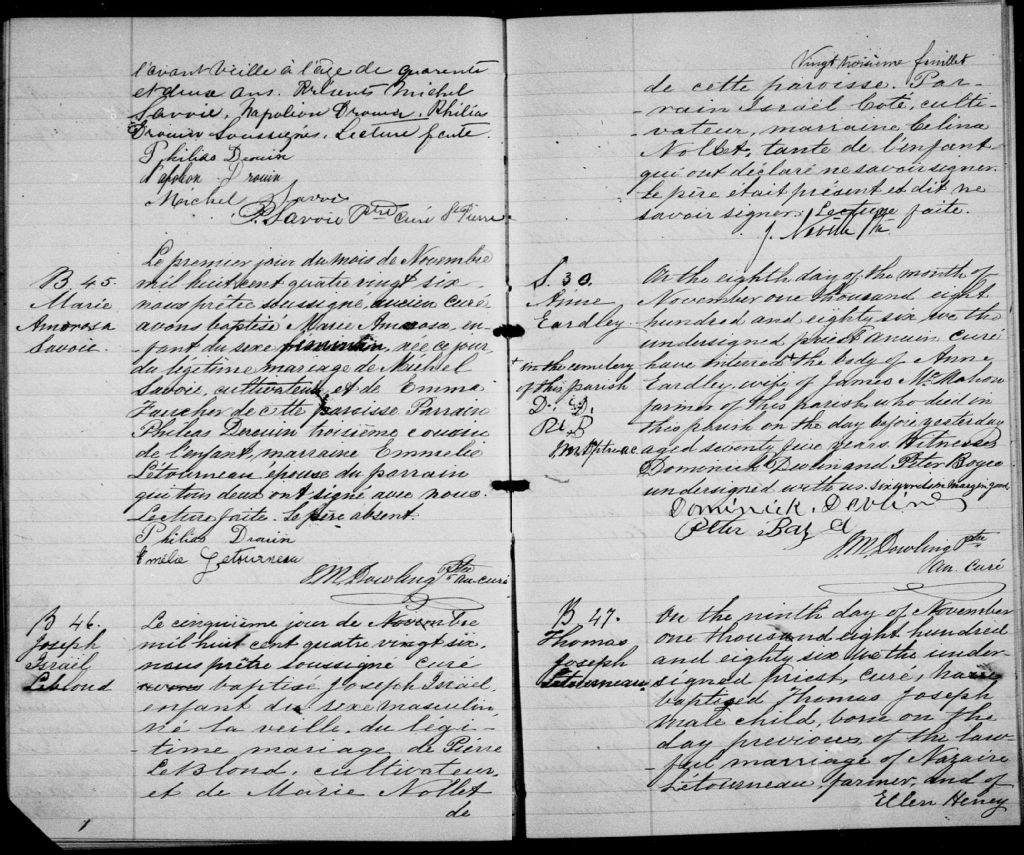 l'avant veille à l'âge de quarente
et deux ans. Présents Michel
Savoie, Napoléon Drouin, Philias
Drouin soussignés. Lecture faite.
Philias Drouin
Napoleon Drouin
Michel Savoi
P. Savoie Ptre Curé St Pierre
B. 45.
Marie
Amorosa
Savoie.
Le premier jour du mois de Novembre
mil huit cent quatre vingt six
nous prêtre soussigné, ancien curé
avons baptisé Marie Amorosa, en-
-fant du sexe féminin, née ce jour
du légitime mariage de Michel
Savoie, cultivateur et de Emma
Faucher de cette paroisse. Parrain
Philias Drouin troisième cousin
de l'enfant, marraine Emmelie
Létourneau épouse du parrain
qui tous deux ont signé avec nous.
Lecture faite. Le père absent.
Philias Drouin
Emélie Letourneau
J.M. Dowling Ptre
an. curé
B 46.
Joseph
Israël
Leblond
Le cinquième jour de Novembre
mil huit cent quatre vingt six,
nous prêtre soussigné curé
avons baptisé Joseph Israël,
enfant du sexe masculin
né la veille, du légi-
-time mariage, de Pierre
LeBlond, cultivateur,
et de Marie Nollet
de
Vingt troisième feuillet
de cette paroisse. Par-
-rain Israël Coté, culti-
-vateur, marraine Celina
Nollet, tante de l'enfant
qui ont déclaré ne savoir signer.
Le père était présent et dit ne
savoir signer. Lecture faite.
J. Ptre
S. 30.
Anne
Eardley
+ in the cemetery
of this parish
D. D.
P. B
On the eighth day of the month of
November one thousand eight
hundred and eighty six we the
undersigned priest ancien curé
have interred + the body of Anne
Eardley, wife of James McMahon
farmer of this parish, who died in
this parish on the day before yesterday
aged seventy five years. Witnesses
Dominick Devlin and Peter Boyce
undersigned with us. six words in margin good
Dominick Devlin
Peter
J.M. Dowling Ptre
an. curé
B 47.
Thomas
Joseph
Létourneau
On the ninth day of November
one thousand eight hundred
and eighty six we the under-
-signed priest, curé, have
baptized Thomas Joseph
male child, born on the
day previous, of the law-
-ful marriage of Nazaire
Létourneau, farmer, and of
Ellen Heney